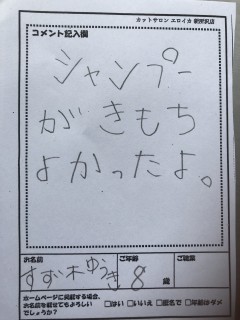 カットサロン エロイカ 新所沢店
コメント記入欄
シャンプー
がきもち
よかったよ。
お名前
ご年齢
ご職業
すず木ゆうき
8
歳
ホームページに掲載する場合、
お名前を載せてもよろしい
でしょうか?
□はい □いいえ □匿名で □年齢はダメ